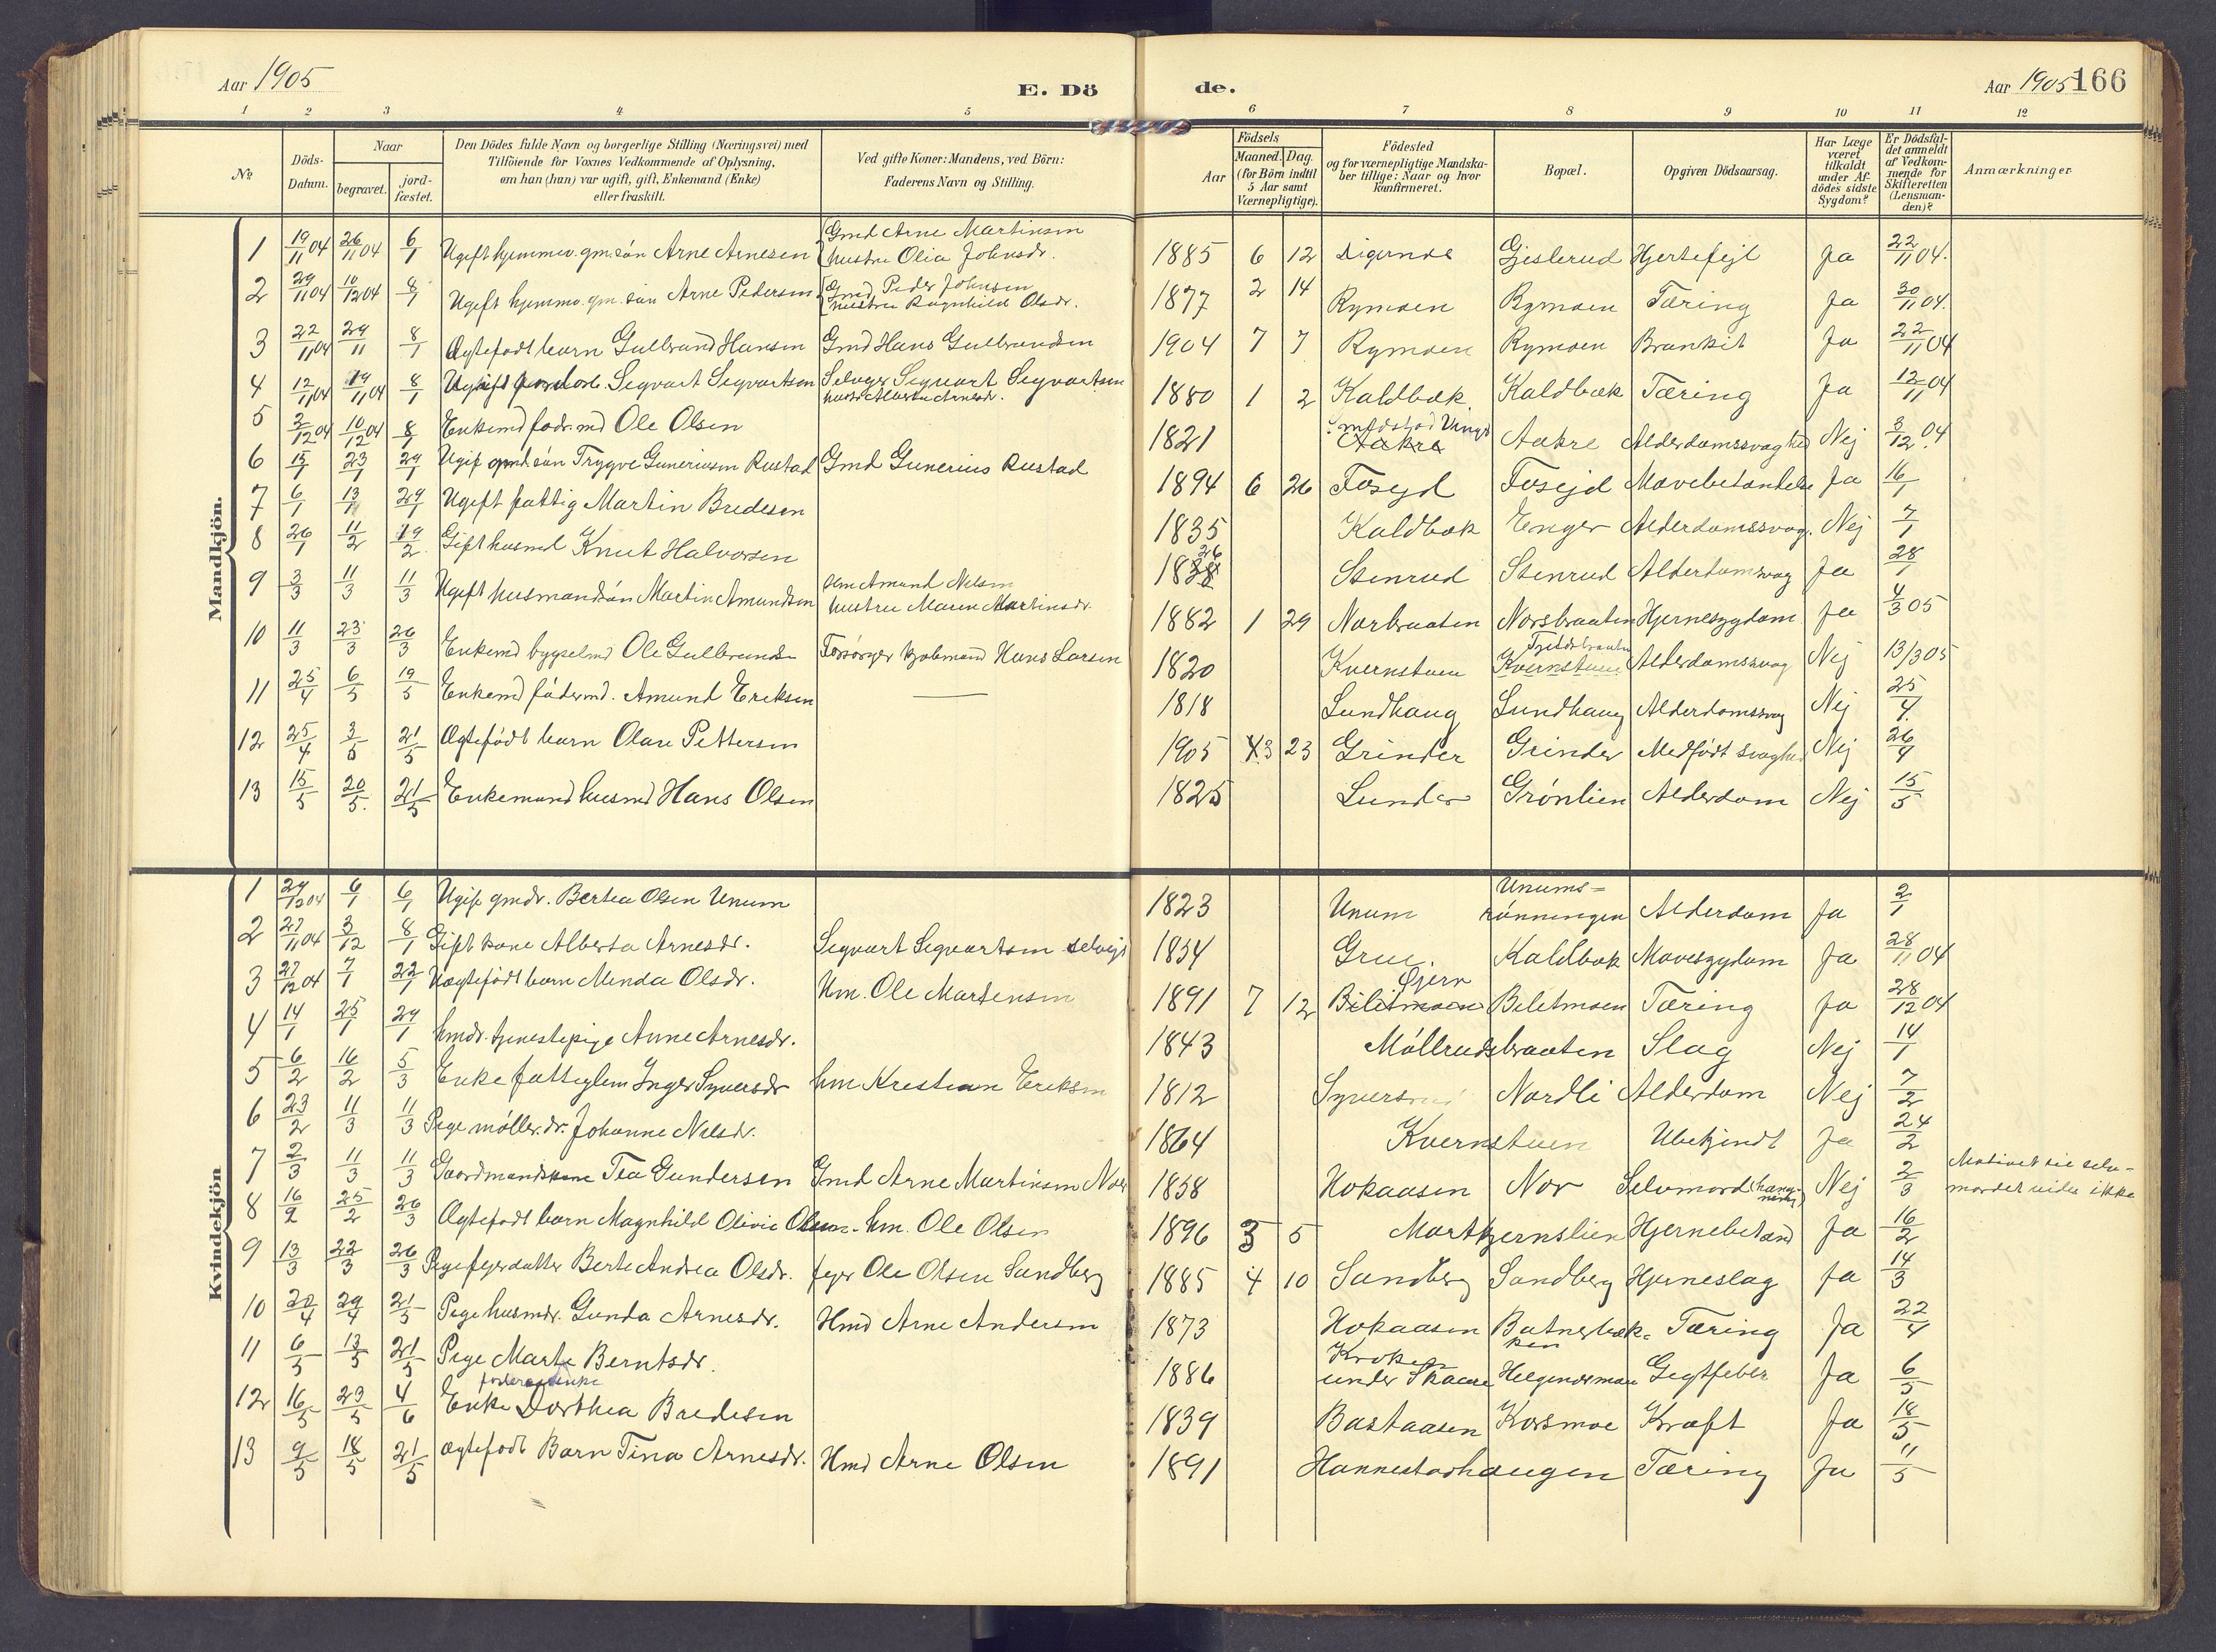 Aar 1905
E. Dö
de.
Aar 1905
166
1 2 3 4 5 6 7 8 9 10 11 12
№
Döds-Datum.
Naar
begravet.
jord-fæstet.
Den Dödes fulde Navn og borgerlige Stilling (Næringsvei) med
Tilföiende for Voxnes Vedkommende af Oplysning,
om han (hun) var ugift, gift, Enkemand (Enke)
eller fraskilt.
Ved gifte Koner: Mandens, ved Börn:
Faderens Navn og Stilling.
Födsels
Aar
Maaned. Dag.
(for Börn indtil
5 Aar samt
Værnepligtige).
Födested
og for værnepligtige Mandska-
ber tillige: Naar og hvor
konfirmeret.
Bopæl.
Opgiven Dödsaarsag.
Har Læge
været
tilkaldt
under Af-
dödes sidste
Sygdom?
Er Dödsfal-
det anmeldt
af Vedkom-
mende for
Skifteretten
(Lensman-
den)?
Anmærkninger
Mandkjön.
1 19/11 04 26/11 04 6/1 Ugift hjemmev. gm. sön Arne Arnesen Gmd Arne Martinsen hustru Olia Johnsdr. 1885 6 12 Digernes Gjeslerud Hjertefejl Ja 22/11 04.
2 29/11 04 10/12 04 8/1 Ugift hjemmev. gm. sön Arne Pedersen Gmd Peder Johnsen hustru Ragnhild Olsdr. 1877 2 14 Rymoen Rymoen Tæring Ja 30/11 04.
3 22/11 04 29/11 8/1 Ægtefödt barn Gulbrand Hansen Gmd Hans Gulbrandsen 1904 7 7 Rymoen Rymoen Bronkit Ja 22/11 04
4 12/11 04 19/11 04 8/1 Ugift Segvart Segvartsen Selvejer Segvart Segvartsen hustr Alberte Arnesdr. 1880 1 2 Kaldbæk Kaldbæk Tæring Ja 12/11 04
5 3/12 04 10/12 04 8/1 Enkemd födr.md Ole Olsen 1821 Aakre Aakre Alderdomssvaghed Nej 3/12 04
6 15/1 23/1 29/1 Ugif gmd. sön Trygve Guneriusen Rustad Gmd Gunerius Rustad 1894 6 26 Fosejd Fosejd Mavebetændelse Ja 16/1
7 6/1 13/1 29/1 Ugift fattig Martin Bredesen 1835 Kaldbæk Enger Alderdomssvag. Nej 7/1
8 26/1 11/2 19/2 Gift husmd Knut Halvorsen 1826 Stenrud Stenrud Alderdomsvag Ja 28/1
9 3/3 11/3 11/3 Ugift husmandssön Martin Amundsen Hm Amund Nelsen hustru Maren Martinsdr. 1882 1 29 Norbraaten Norsbraaten Hjernesygdom Ja 4/3 05
10 11/3 23/3 26/3 Enkemd bygselmd Ole Gulbrandsen Forsörger Kjöbmand Hans Larsen 1820 Kvernstuen Kvernstuen Alderdomssvag Nej 13/3 05
11 25/4 6/5 19/5 Enkemd födermd. Amund Eriksen — 1818 Lundhaug Lundhaug Alderdomssvag Nej 25/4
12 25/4 3/5 21/5 Ægtefödt barn Olav Pettersen 1905 3 23 Grinder Grinder Medfödt svaghed Nej 26/4
13 15/5 20/5. 21/5 Enkemand husmd Hans Olsen 1825 Lunder Grönlien Alderdom Nej 15/5
Kvindekjön
1 29/12 04 6/1 6/1 Ugift gmdr. Bertea Olsen Unum 1823 Unum Unums=rönningen Alderdom Ja 2/1
2 27/11 04 3/12 8/1 Gift kone Alberta Arnesdr. Segvart Segvartsen selvejer 1834 Grue. Kaldbæk Mavesygdom Ja 28/11 04
3 27/12 04 7/1 22/1 Uægtefödt barn Menda Olsdr. Hm. Ole Martensen 1891 7 12 Biletmoen Öjern Biletmoen Tæring Ja 28/12 04
4 14/1 25/1 29/1 hmdr. tjenestepige Anne Arnesdr. 1843 Möllrudsbraaten Slag Nej 14/1
5 6/2 16/2 5/3 Enke fattiglem Inger Syversdr hm Kristian Eriksen 1812 Syversrud Nordli Alderdom Nej 7/2
6 23/2 11/3 11/3 Pige möller.dr. Johanne Nelsdr. 1864 Kvernstuen Ubekjendt Ja 24/2
7 2/3 11/3 11/3 Gaardmandskone Tea Gundersen Gmd Arne Martinsen Nor 1858 Hokaasen Nor Selvmord (hængning) Nej 2/3 Motivet til selv-mordet vides ikke
8 16/2 25/2 26/3 Ægtefödt barn Magnhild Olivie Olsen. hm. Ole Olsen 1896 3 5 Mortkjernslien Hjernebetænd Ja 16/2
9 13/3 22/3 26/3 Pige fejerdatter Berte Andrea Olsdr. fejer Ole Olsen Sandberg 1885 4 10 Sandberg Sandberg Hjerneslag Ja 14/3
10 20/4 29/4 21/5 Pige husmdr. Gunda Arnesdr. Hmd Arne Andersen 1873 Hokaasen Batnerbækken Tæring Ja 22/4
11 6/5 13/5 21/5 Pige Marte Berntsdr. 1886 Kroken under Skaare Helgendermoen Gigtfeber Ja 6/5
12 16/5 23/5 4/6 Enke Dorthea Bredesen 1839 Bastaasen Korsmoe Kræft Ja 18/5
13 9/5 18/5 21/5 ægtefödt Barn Tina Arnesdr. Hmd Arne Olsen 1891 Hannestadhaugen Tæring Ja 11/5